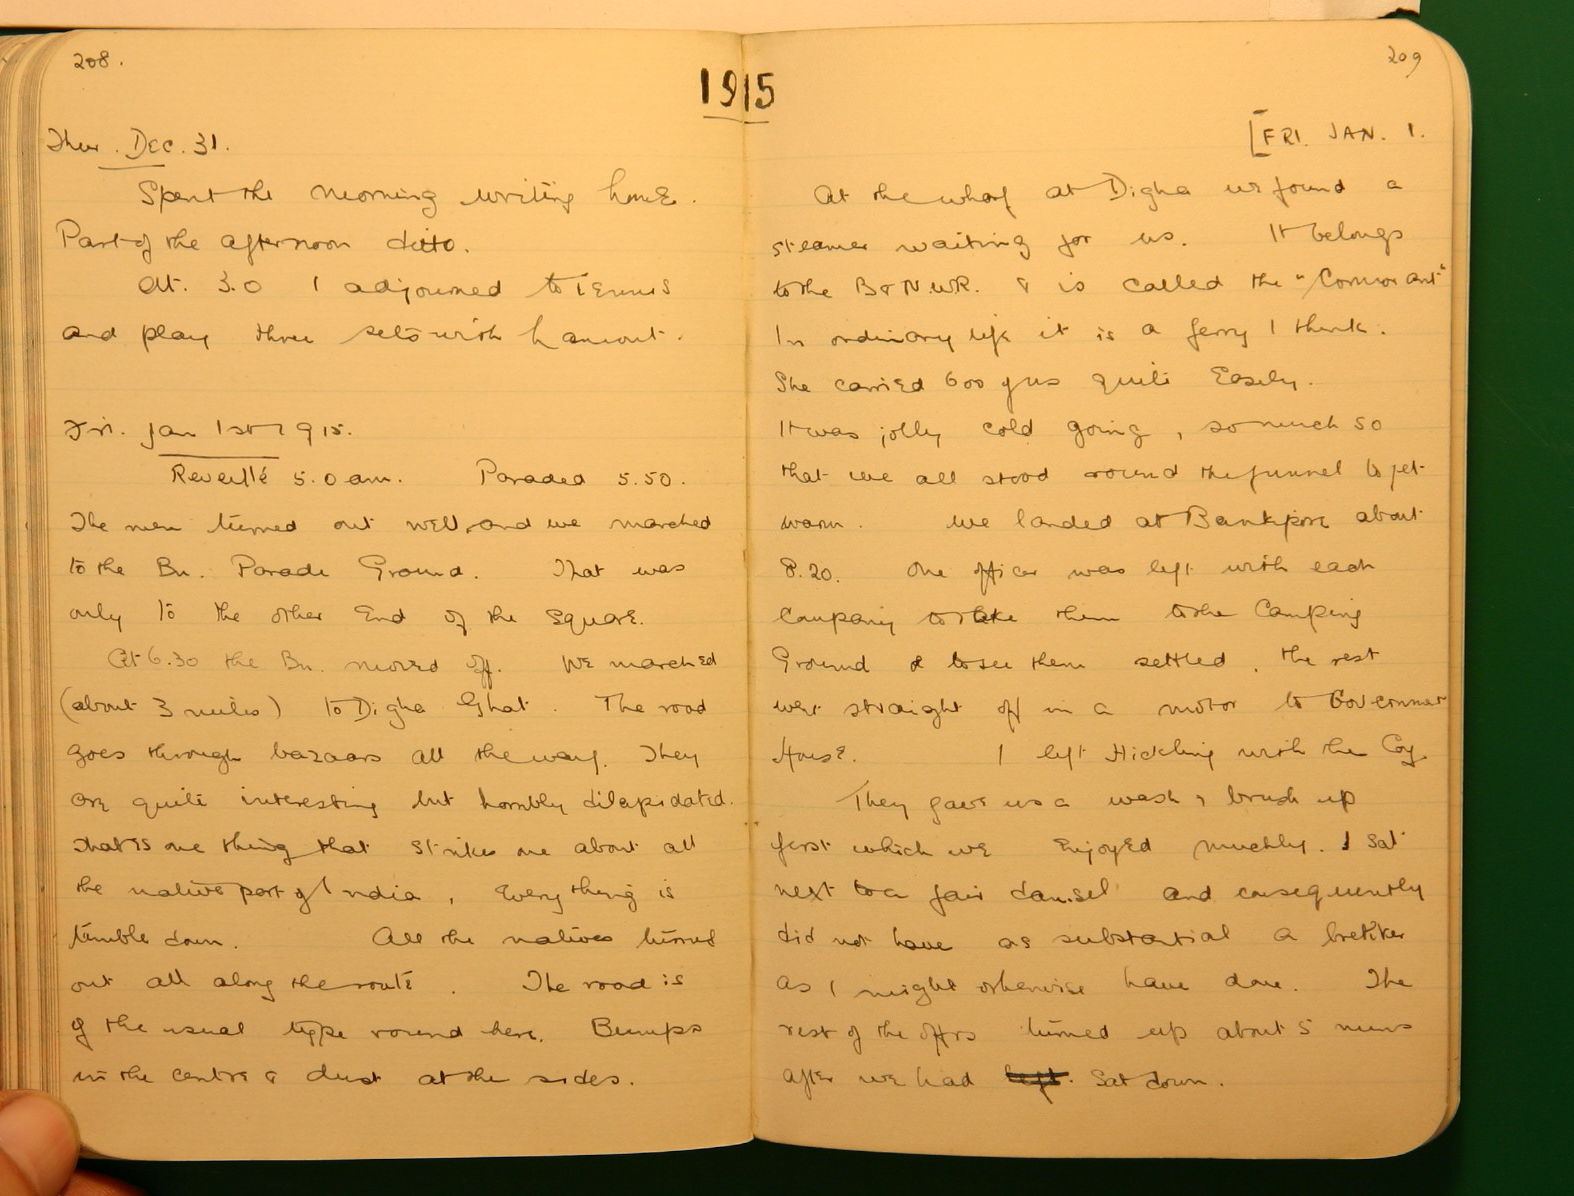 208.
1915
Thur. Dec. 31.
Spent the morning writing home.
Part of the afternoon ditto.
At. 3.0 I adjourned to Tennis
and play three sets with
Fri. Jan 1st 1915.
Reveillé 5.0 am. Paraded 5.50.
The men turned out well and we marched
to the Bn. Parade Ground. That was
only to the other End of the Square.
At 6.30 the Bn. moved off. We marched
(about 3 miles) to Digha Ghat. The road
goes through bazaars all the way. They
are quite interesting but horribly dilapidated.
That is one thing that strikes me about all
the native part of India, Everything is
tumble down. All the natives turned
out all along the route. The road is
of the usual type round here. Bumps
in the centre & dust at the sides.
209
[FRI. JAN. 1.
At the wharf at Digha we found a
steamer waiting for us. It belongs
to the B & N.W.R. & is called the "Cormorant"
In ordinary life it is a ferry I think.
She carried 600 of us quite Easily.
It was jolly cold going, so much so
that we all stood around the funnel to get
warm. We landed at Bankipore about
8.20. One officer was left with each
Company to take them to the Camping
Ground & to see them settled, the rest
went straight off in a motor to Government
House. I left Hickling with the Coy.
They gave us a wash & brush up
first which we Enjoyed muchly. I sat
next to a fair damsel and consequently
did not have as substantial a brekker
as I might otherwise have done. The
rest of the offrs turned up about 5 mins
after we had left. Sat down.